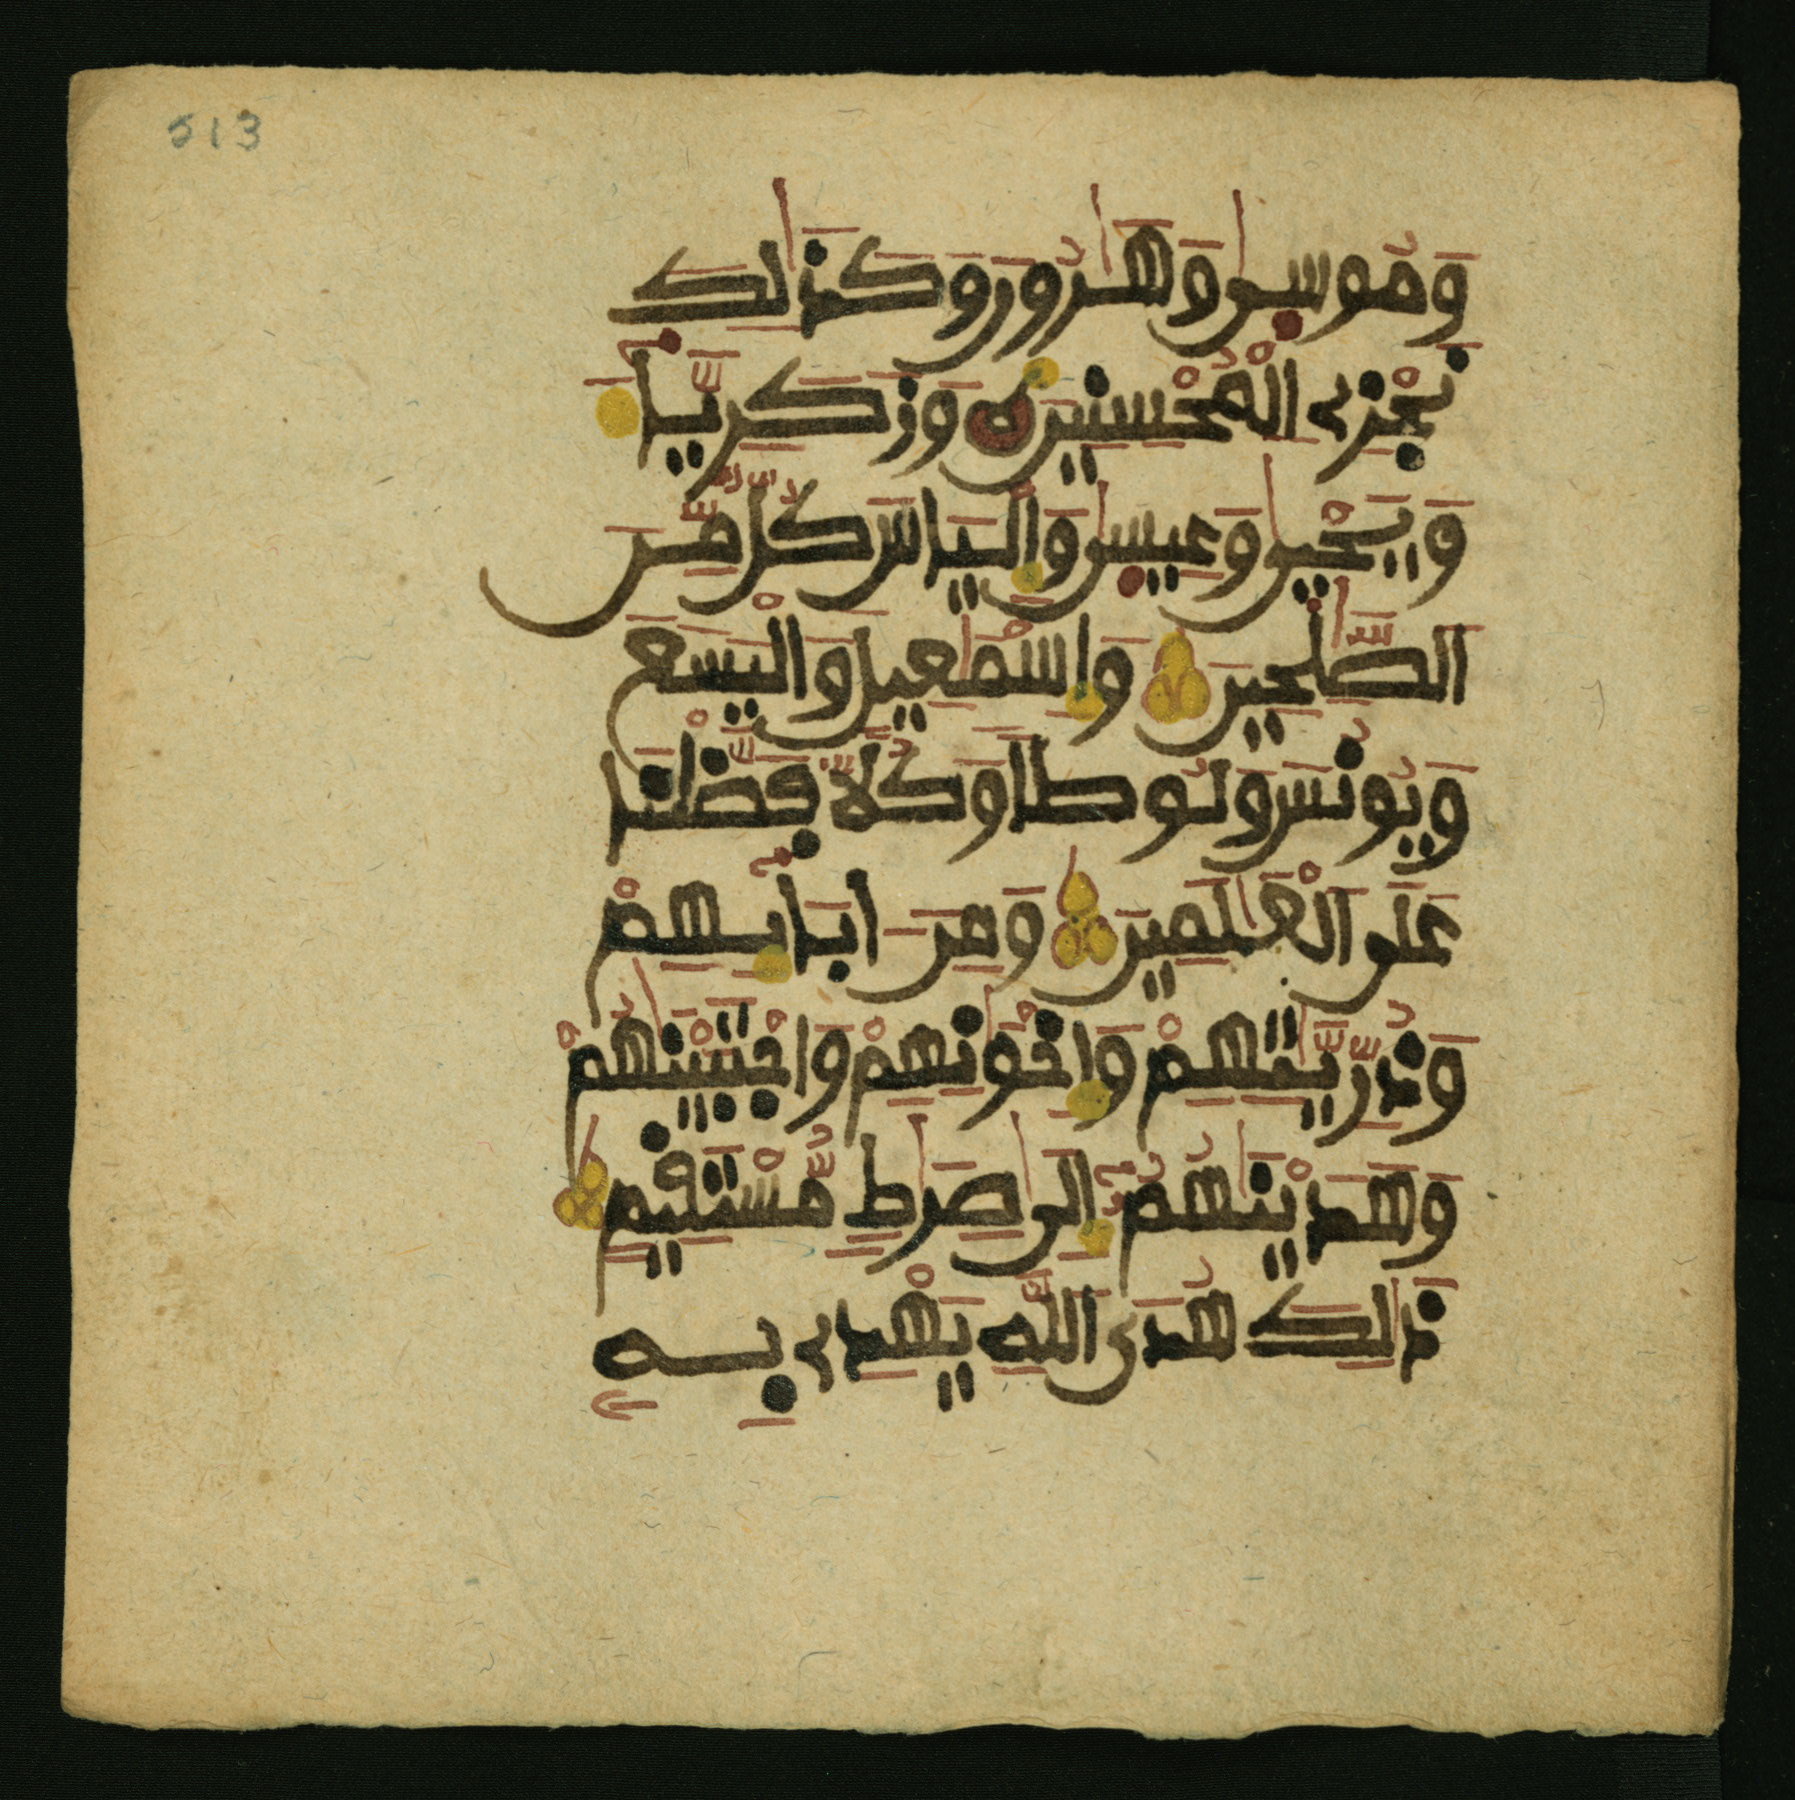 513
وَمُوسىٰ وَهَٰرُونَ وَكَذَٰلِكَ
نَجْزِے اِ۬لْمُحْسِنِينَ وَزَكَرِيَّآءَ
وَيَحْيىٰ وَعِيسىٰ وَإِلْيَاسَ كُلّٞ مِّنَ
اَ۬لصَّٰلِحِينَ وَإِسْمَٰعِيلَ وَالْيَسَعَ
وَيُونُسَ وَلُوطاٗ وَكُلّاٗ فَضَّلْنَا
عَلَى اَ۬لْعَٰلَمِينَ وَمِنَ اٰبَآئِهِمْ
وَذُرِّيَّٰتِهِمْ وَإِخْوَٰنِهِمْ وَاجْتَبَيْنَٰهُمْ
وَهَدَيْنَٰهُمُۥٓ إِلَىٰ صِرَٰطٖ مُّسْتَقِيمٖ
ذَٰلِكَ هُدَى اَ۬للَّهِ يَهْدِے بِهِۦ